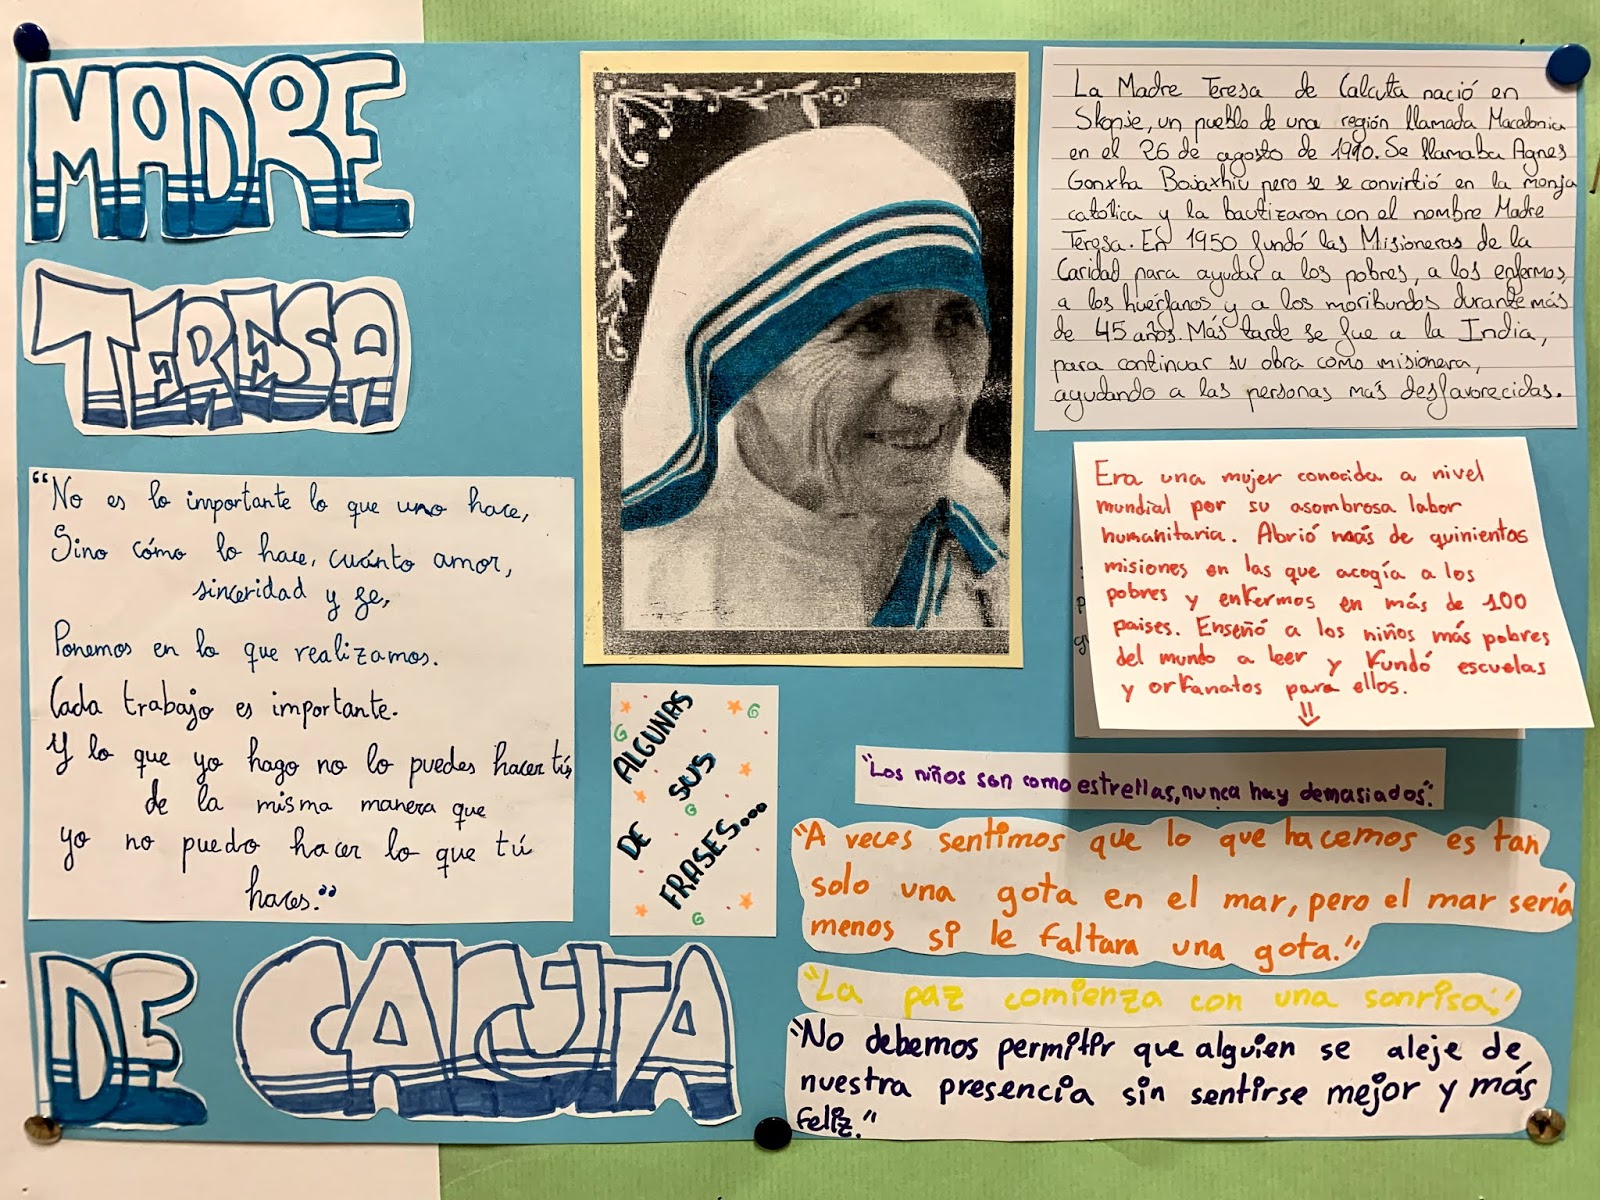 MADRE
TERESA
DE CALCUTA
“No es lo importante lo que uno hace,
Sino cómo lo hace, cuánto amor,
sinceridad y fe,
Ponemos en lo que realizamos.
Cada trabajo es importante.
Y lo que yo hago no lo puedes hacer tú,
de la misma manera que
yo no puedo hacer lo que tú
haces.”
La Madre Teresa de Calcuta nació en
Skopje, un pueblo de una región llamada Macedonia
en el 26 de agosto de 1910. Se llamaba Agnes
Gonxha Bojaxhiu pero se se convirtió en la monja
católica y la bautizaron con el nombre Madre
Teresa. En 1950 fundó las Misioneras de la
Caridad para ayudar a los pobres, a los enfermos,
a los huérfanos y a los moribundos durante más
de 45 años. Más tarde se fue a la India,
para continuar su obra como misionera,
ayudando a las personas más desfavorecidas.
Era una mujer conocida a nivel
mundial por su asombrosa labor
humanitaria. Abrió más de quinientas
misiones en las que acogía a los
pobres y enfermos en más de 100
paises. Enseñó a los niños más pobres
del mundo a leer y fundó escuelas
y orfanatos para ellos.
ALGUNAS
DE SUS
FRASES...
"Los niños son como estrellas, nunca hay demasiados".
"A veces sentimos que lo que hacemos es tan
solo una gota en el mar, pero el mar sería
menos si le faltara una gota."
"La paz comienza con una sonrisa."
"No debemos permitir que alguien se aleje de
nuestra presencia sin sentirse mejor y más
feliz."